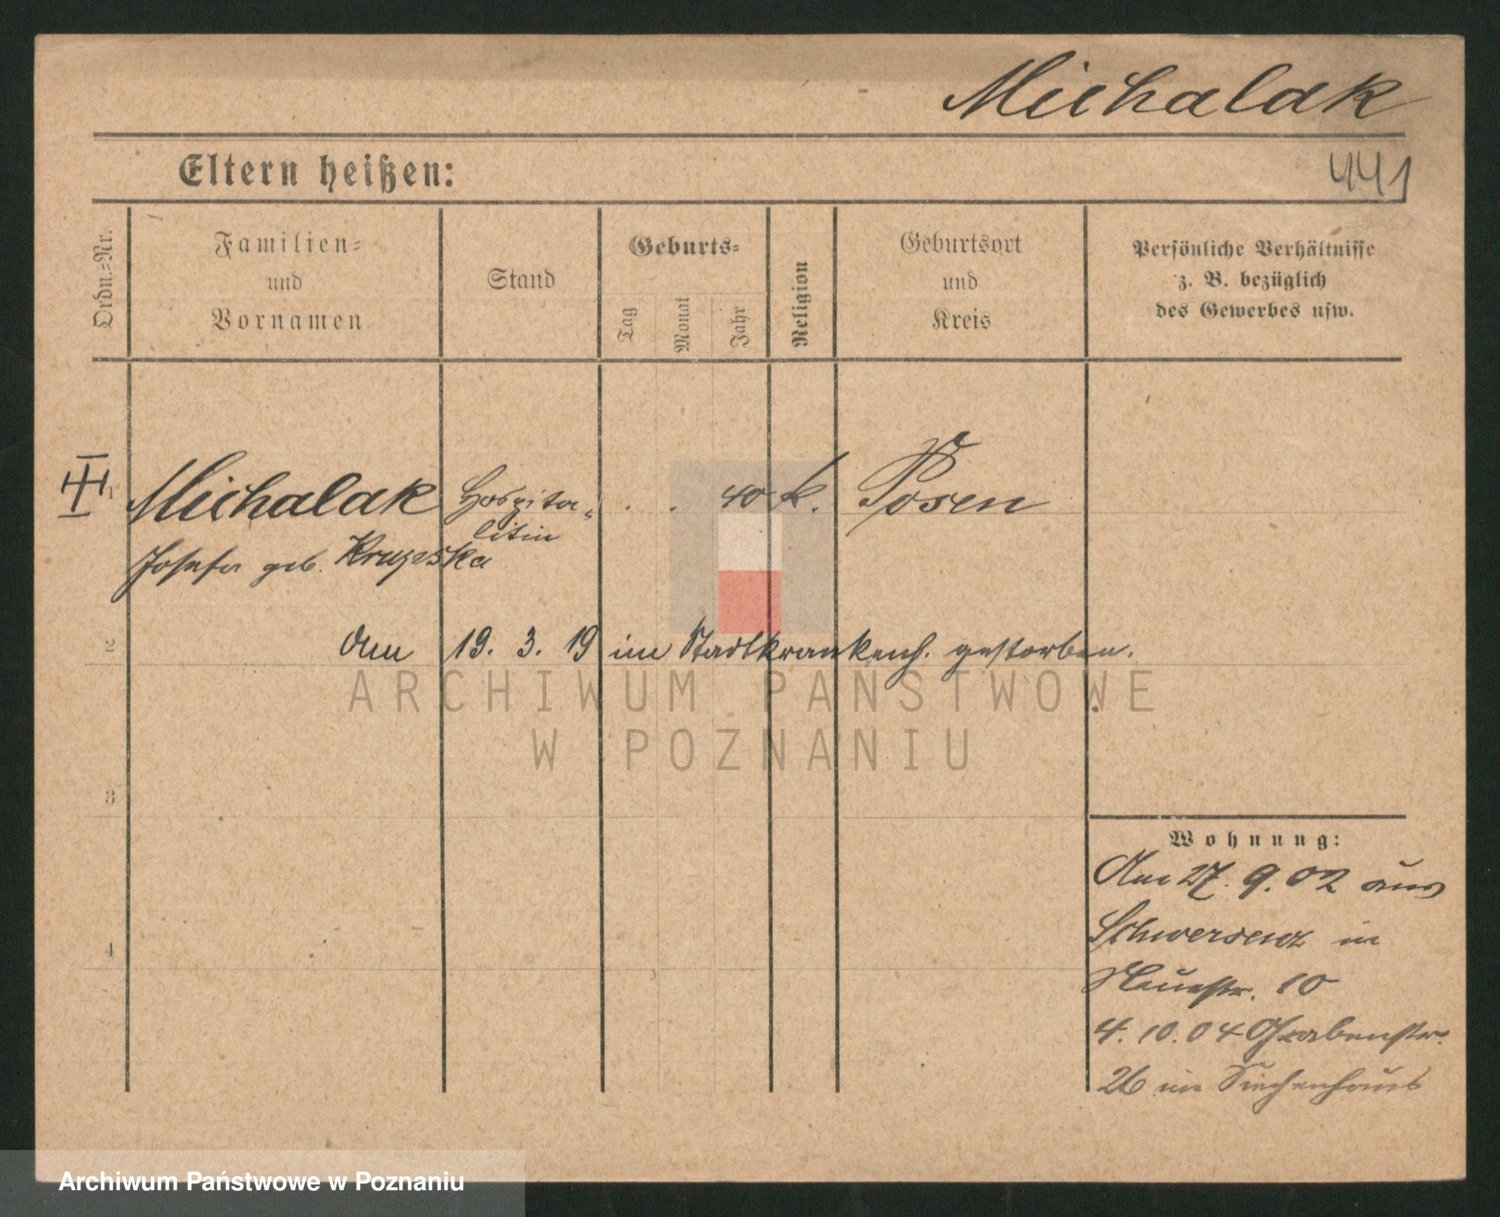 Michalak
Eltern heißen:
441
Ordn.=Nr.
Familien=
und
Vornamen
Stand
Geburts=
Tag
Monat
Jahr
Religion
Geburtsort
und
Kreis
Persönliche Verhältnisse
z. B. bezüglich
des Gewerbes usw.
1
Michalak
Hospita=
litin
. . 40 k. Posen
Josefa geb.
2
den 19. 3. 19 im Stadtkrankenh. gestorben.
ARCHIWUM PAŃSTWOWE
W POZNANIU
3
4
Wohnung:
Am 27. 9. 02 aus
Schwersenz in
Neuestr. 10
4. 10. 04 Grabenstr.
26 im Siechenhaus
Archiwum Państwowe w Poznaniu